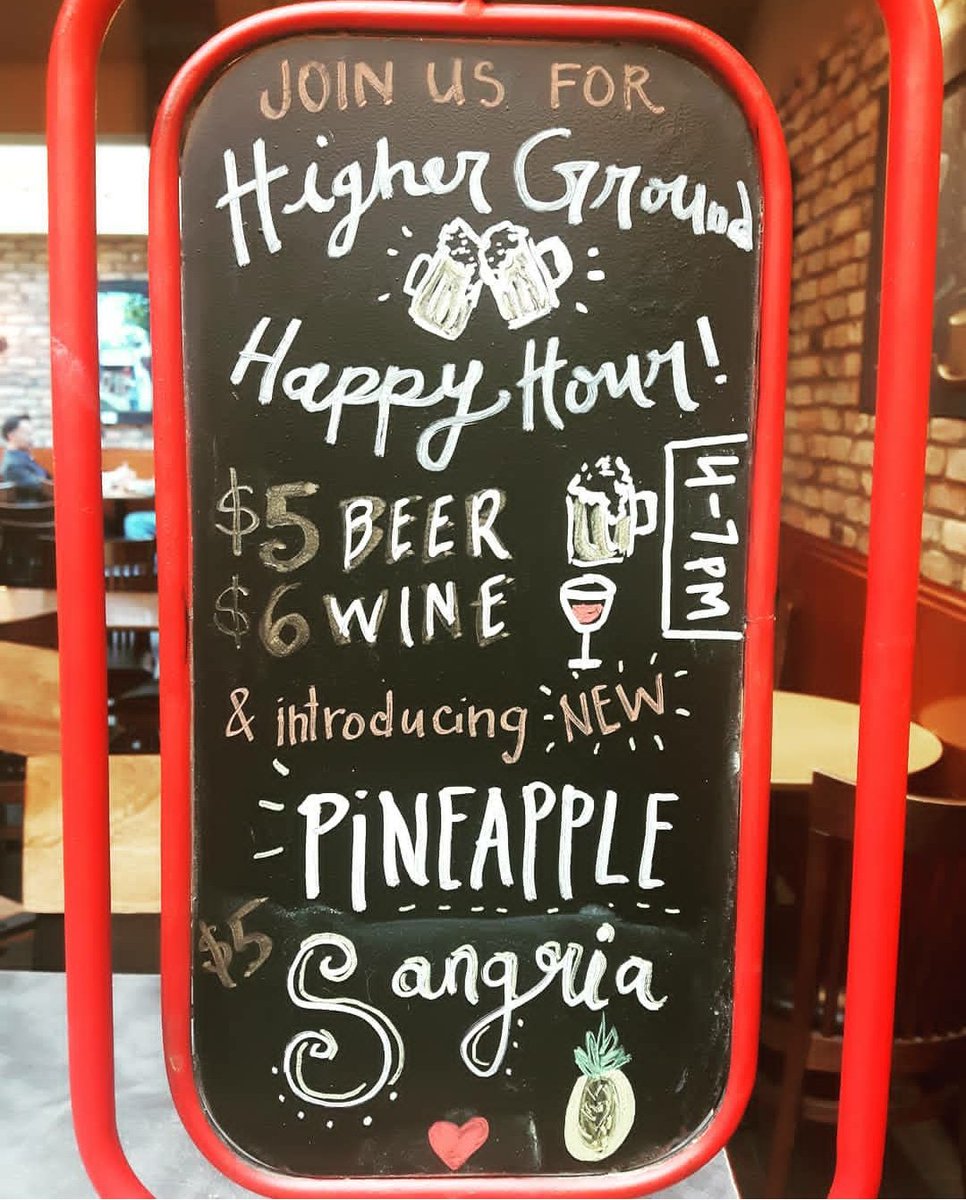 JOIN US FOR
Higher Ground
Happy Hour!
$5 BEER
$6 WINE
4-7PM
& introducing NEW
PiNEAPPLE
$5
Sangria